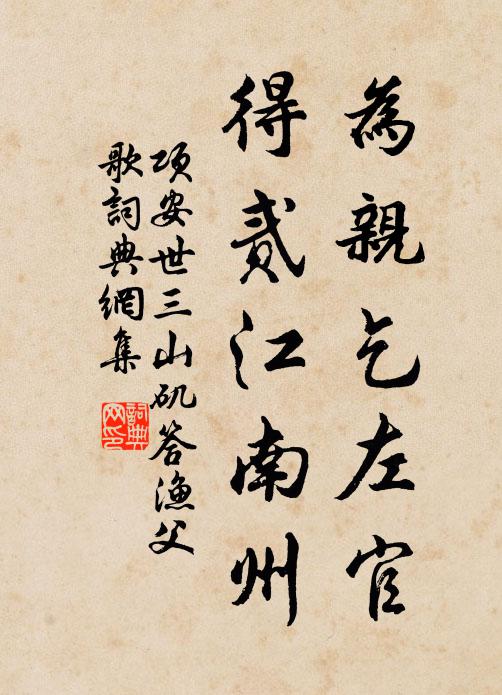 為親乞左官
得貳江南州
項安世三山矶答漁父
歌詞典網集
詞典
网印